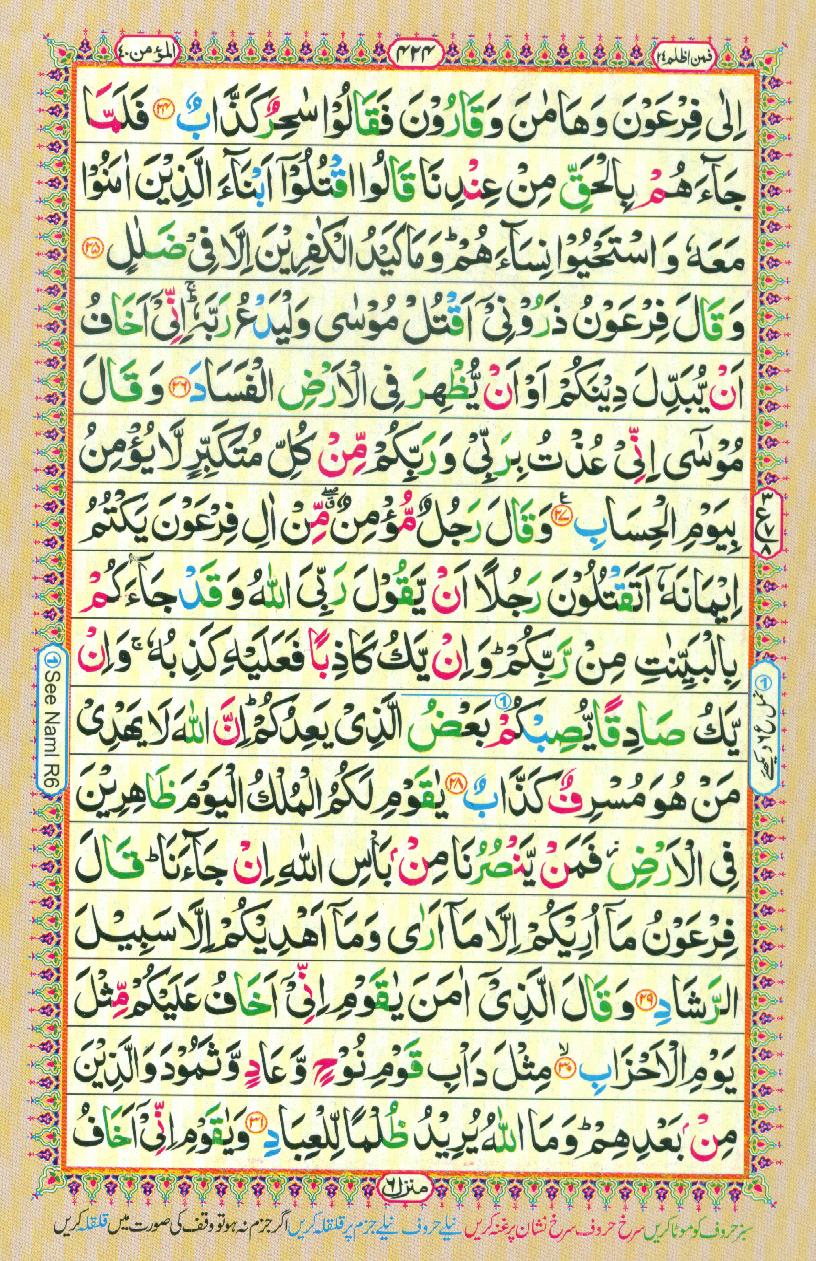 المؤمن ٤٠
٤٢٤
فمن اظلم ٢٤
اِلٰى فِرْعَوْنَ وَهَامٰنَ وَقَارُوْنَ فَقَالُوْا سٰحِرٌ كَذَّابٌ ﴿٢٤﴾ فَلَمَّا
جَآءَهُمْ بِالْحَقِّ مِنْ عِنْدِنَا قَالُوا اقْتُلُوْٓا اَبْنَآءَ الَّذِيْنَ اٰمَنُوْا
مَعَهٗ وَاسْتَحْيُوْا نِسَآءَهُمْ ؕ وَمَا كَيْدُ الْكٰفِرِيْنَ اِلَّا فِيْ ضَلٰلٍ ﴿٢٥﴾
وَقَالَ فِرْعَوْنُ ذَرُوْنِيْٓ اَقْتُلْ مُوْسٰى وَلْيَدْعُ رَبَّهٗ ۚ اِنِّيْٓ اَخَافُ
اَنْ يُّبَدِّلَ دِيْنَكُمْ اَوْ اَنْ يُّظْهِرَ فِي الْاَرْضِ الْفَسَادَ ﴿٢٦﴾ وَقَالَ
مُوْسٰٓى اِنِّيْ عُذْتُ بِرَبِّيْ وَرَبِّكُمْ مِّنْ كُلِّ مُتَكَبِّرٍ لَّا يُؤْمِنُ
بِيَوْمِ الْحِسَابِ ﴿٢٧﴾ وَقَالَ رَجُلٌ مُّؤْمِنٌ ۖ مِّنْ اٰلِ فِرْعَوْنَ يَكْتُمُ
اِيْمَانَهٗٓ اَتَقْتُلُوْنَ رَجُلًا اَنْ يَّقُوْلَ رَبِّيَ اللّٰهُ وَقَدْ جَآءَكُمْ
بِالْبَيِّنٰتِ مِنْ رَّبِّكُمْ ؕ وَاِنْ يَّكُ كَاذِبًا فَعَلَيْهِ كَذِبُهٗ ۚ وَاِنْ
يَّكُ صَادِقًا يُّصِبْكُمْ بَعْضُ الَّذِيْ يَعِدُكُمْ ؕ اِنَّ اللّٰهَ لَا يَهْدِيْ
مَنْ هُوَ مُسْرِفٌ كَذَّابٌ ﴿٢٨﴾ يٰقَوْمِ لَكُمُ الْمُلْكُ الْيَوْمَ ظَاهِرِيْنَ
فِي الْاَرْضِ ؗ فَمَنْ يَّنْصُرُنَا مِنْۢ بَاْسِ اللّٰهِ اِنْ جَآءَنَا ؕ قَالَ
فِرْعَوْنُ مَآ اُرِيْكُمْ اِلَّا مَآ اَرٰى وَمَآ اَهْدِيْكُمْ اِلَّا سَبِيْلَ
الرَّشَادِ ﴿٢٩﴾ وَقَالَ الَّذِيْٓ اٰمَنَ يٰقَوْمِ اِنِّيْٓ اَخَافُ عَلَيْكُمْ مِّثْلَ
يَوْمِ الْاَحْزَابِ ﴿٣٠﴾ مِثْلَ دَاْبِ قَوْمِ نُوْحٍ وَّعَادٍ وَّثَمُوْدَ وَالَّذِيْنَ
مِنْۢ بَعْدِهِمْ ؕ وَمَا اللّٰهُ يُرِيْدُ ظُلْمًا لِّلْعِبَادِ ﴿٣١﴾ وَيٰقَوْمِ اِنِّيْٓ اَخَافُ
① See Naml R6
منزل ٦
سبز حروف کو موٹا کریں سرخ حروف سرخ نشان پر غنہ کریں نیلے حروف نیلے جزم پر قلقلہ کریں اگر جزم نہ ہو تو وقف کی صورت میں قلقلہ کریں